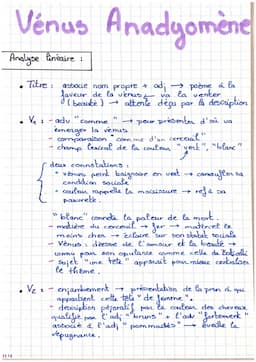 Vénus Anadyomène
Analyse linéaire :
• Titre : associe nom propre + adj → poème à la
faveur de la vénus ← va la vanter
(beauté) → attente déçu par la description
• V1 : - adv "comme" → pour présenter d'où va
émerger la vénus
- comparaison "comme d'un cercueil"
- champ lexical de la couleur "vert", "blanc"
deux connotations :
• vénus peint baignoire en vert →
condition sociale
• couleur rappelle la moisissure → ref à sa
pauvreté
"blanc" connote la pâleur de la mort.
- matière du cercueil → fer →
moins cher → éclaire sur son statut sociale
- Vénus : déesse de l'amour et la beauté →
connu pour son opulance comme celle de Boticelli
- sujet "une tête" apparait pour mieux
le thème.
• V2 : - enjambement → présentation de la pers à qui
appartient cette tête "de femme".
- description péjoratif par la couleur des cheveux
qualifié par l'adj "bruns" + l'adv "fortement"
associé à l'adj "pommadés" → éveille la
répugnance.